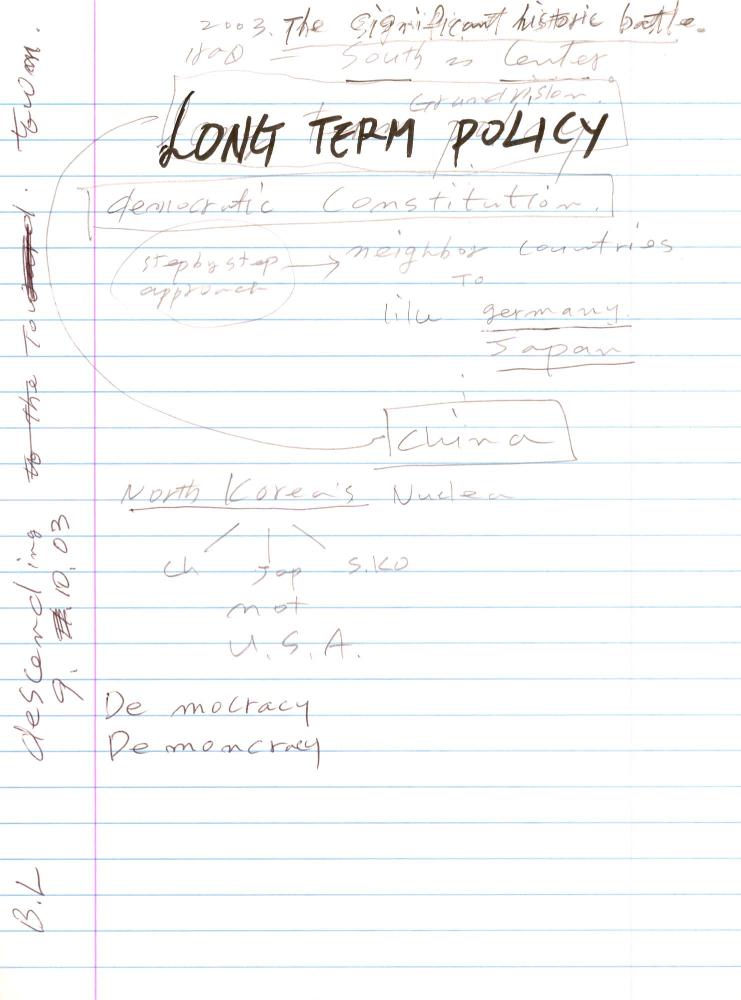 2003. The significant historic battle.
South is Center
Grand vision.
LONG TERM POLICY
democratic Constitution.
step by step → neighbor countries
approach
TO
like germany.
Japan
China
North Korea's Nuclea
ch Jap S.KO
not
U.S.A.
De mocracy
De moncracy
B.L descending to the town.
9. 10.03